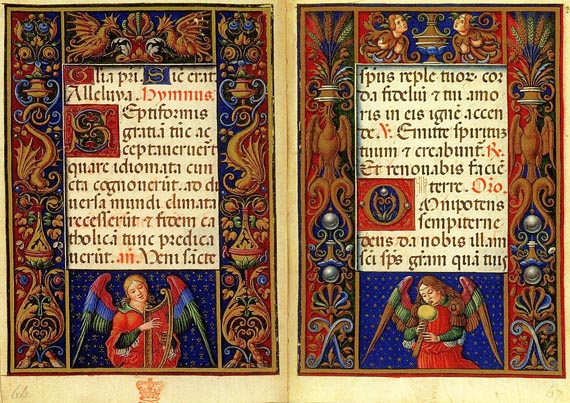 Glia pri. Sic erat
Alleluya. Hymnus.
Septiformis
gratiā tūc ac
ceptaveruēt
quare idiomata cun
cta cognoverūt. ad di
versa mundi climata
recesserūt & fidem ca
tholicā tunc predica
verūt. añ. Veni sācte
spūs reple tuor̄ cor
da fideliū & tui amo
ris in eis ignē accen
de. ℣. Emitte spiritūm
tuum & creabunt. ℟.
Et renovabis faciē
terre. Orō.
Omnipotens
sempiterne
deus da nobis illam
sc̄i sp̄s grām quā tuis
66
67